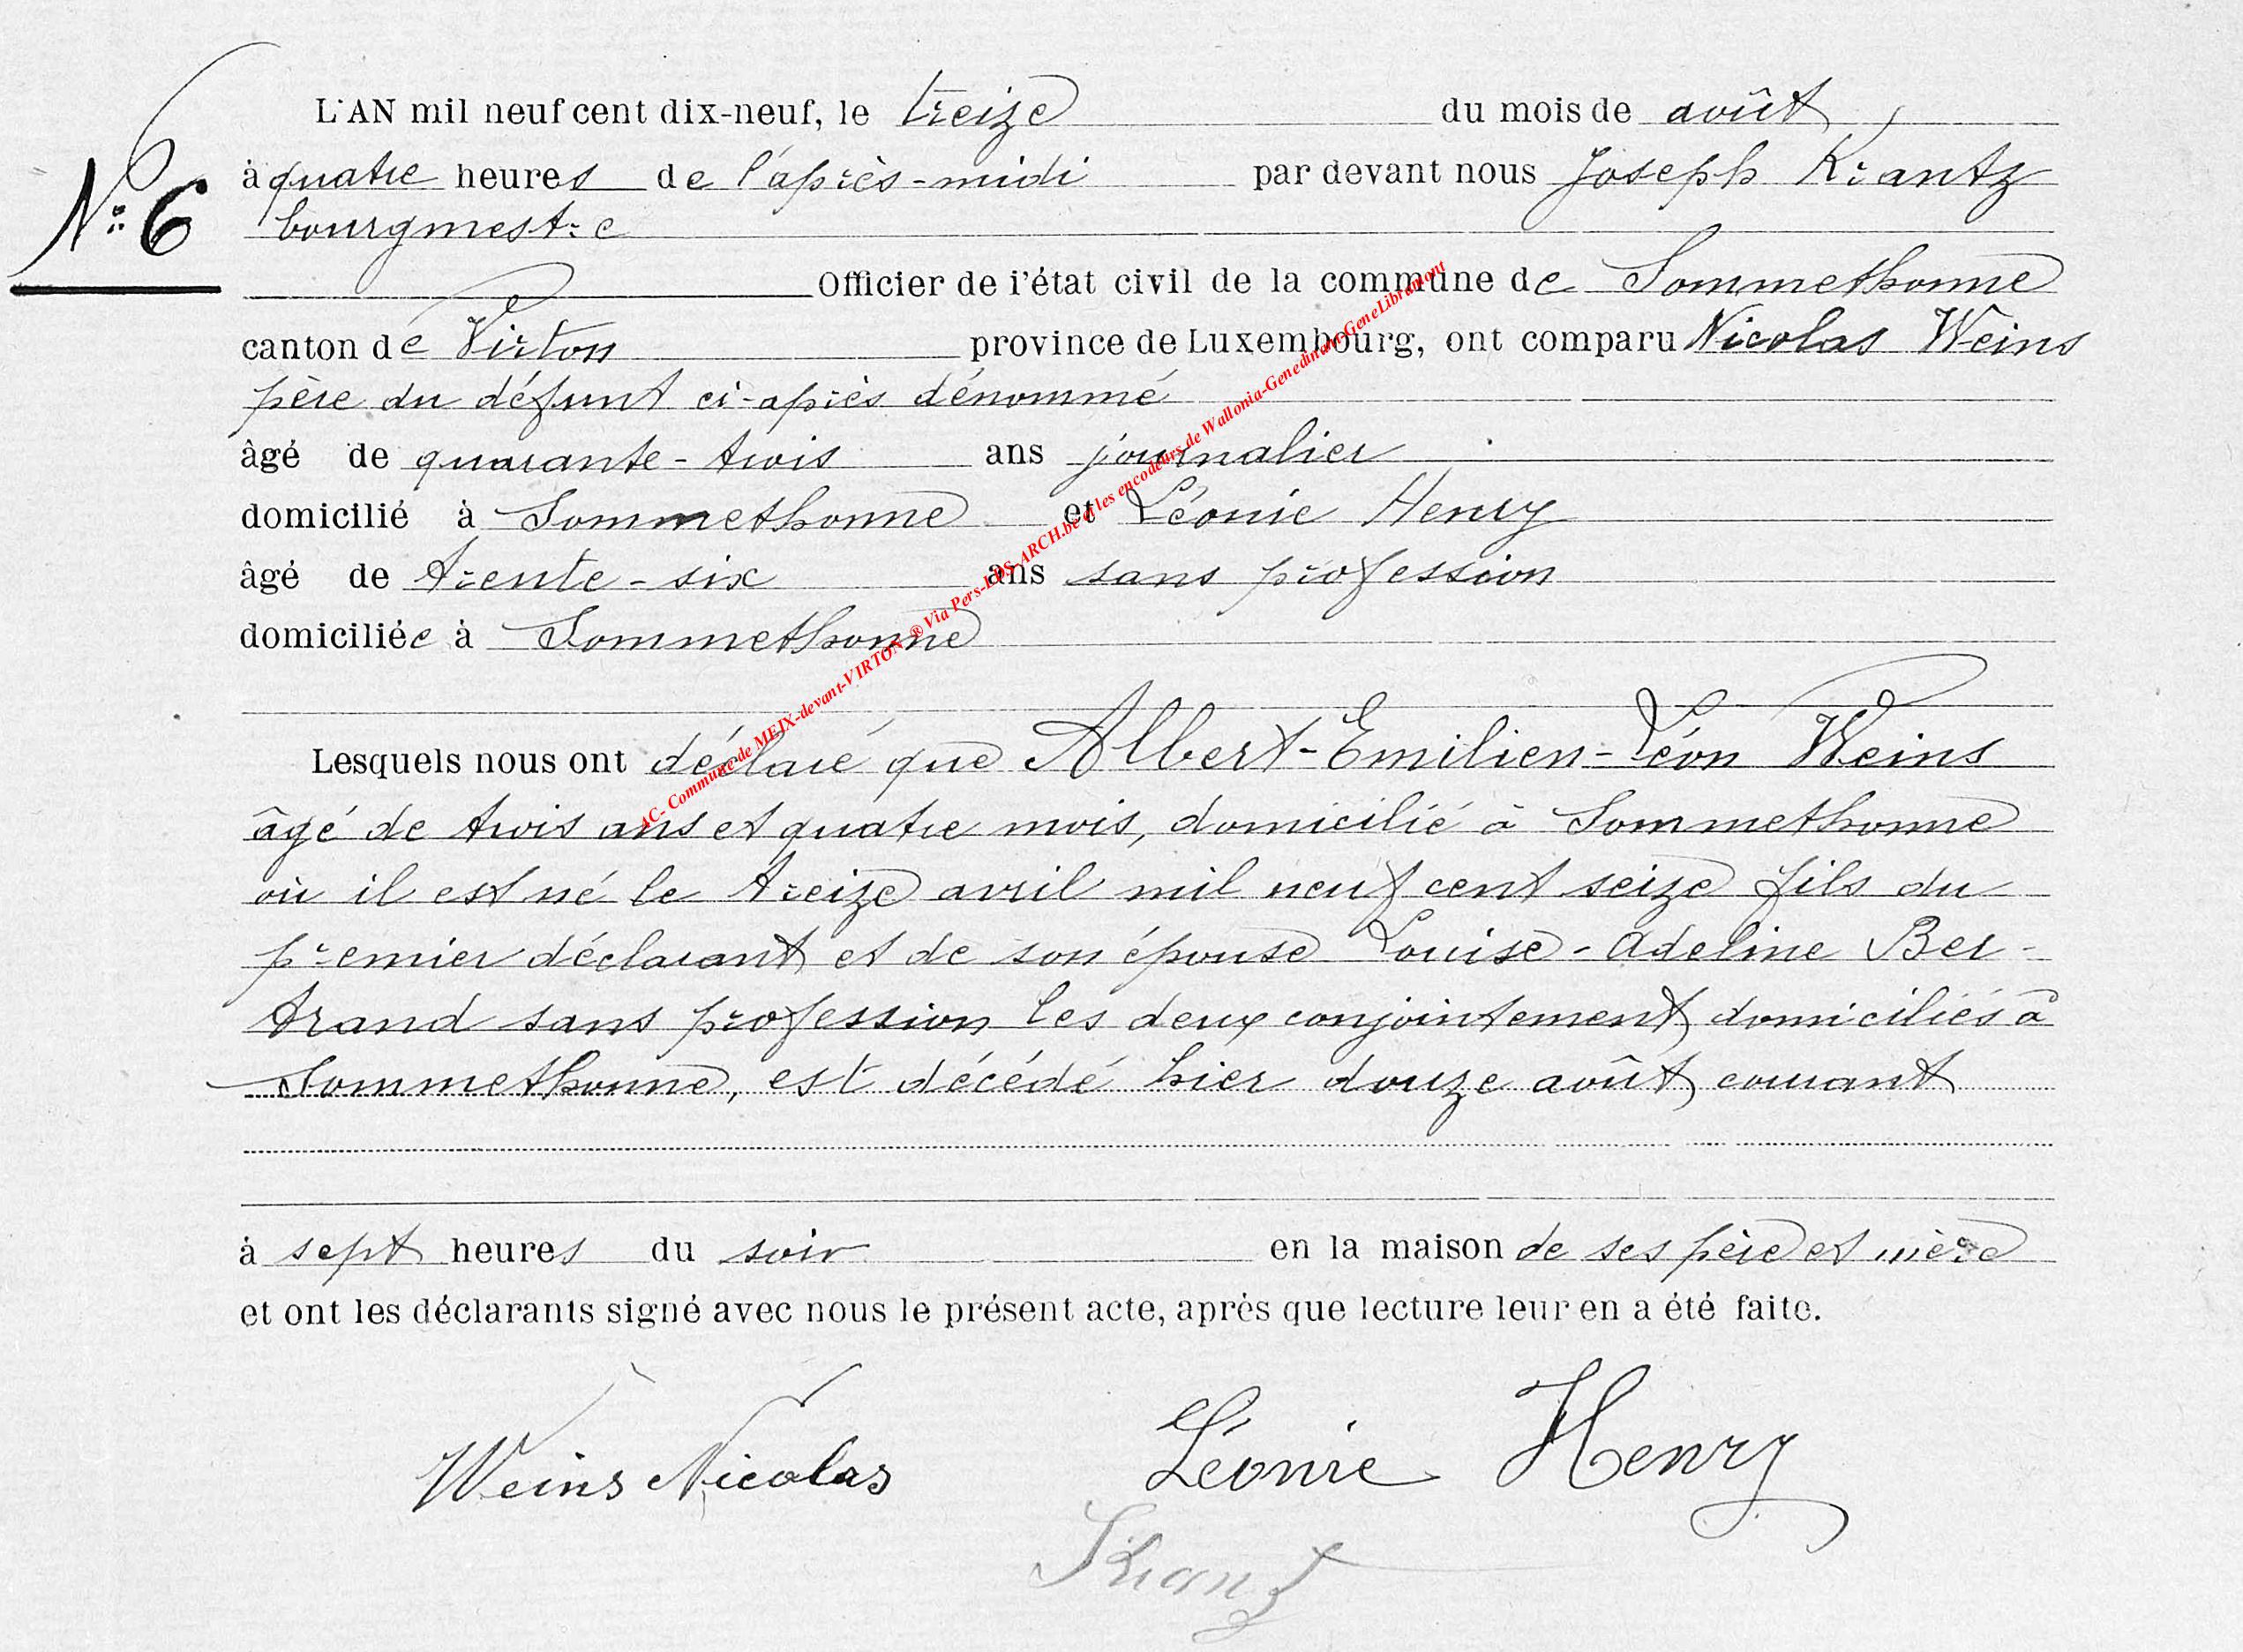 L'AN mil neuf cent dix-neuf, le treize du mois de août
N° 6
à quatre heures de l'après-midi par devant nous Joseph Krantz
bourgmestre
Officier de l'état civil de la commune de Sommethonne
canton de Virton province de Luxembourg, ont comparu Nicolas Weins
père du défunt ci-après dénommé
âgé de quarante-trois ans journalier
domicilié à Sommethonne et Léonie Henry
âgé de trente-six ans sans profession
domiciliée à Sommethonne
Lesquels nous ont déclaré que Albert-Emilien-Léon Weins
âgé de trois ans et quatre mois, domicilié à Sommethonne
où il est né le treize avril mil neuf cent seize fils du
premier déclarant et de son épouse Louise-Adeline Ber-
trand sans profession les deux conjointement domiciliés à
Sommethonne, est décédé hier douze août courant
à sept heures du soir en la maison de ses père et mère
et ont les déclarants signé avec nous le présent acte, après que lecture leur en a été faite.
Weins Nicolas Léonie Henry
Krantz
AC- Commune de MEIX-devant-VIRTON ® Via Pers-LDS-ARCH.be et les encodeurs de Wallonia-Genedinant-GeneLibramont